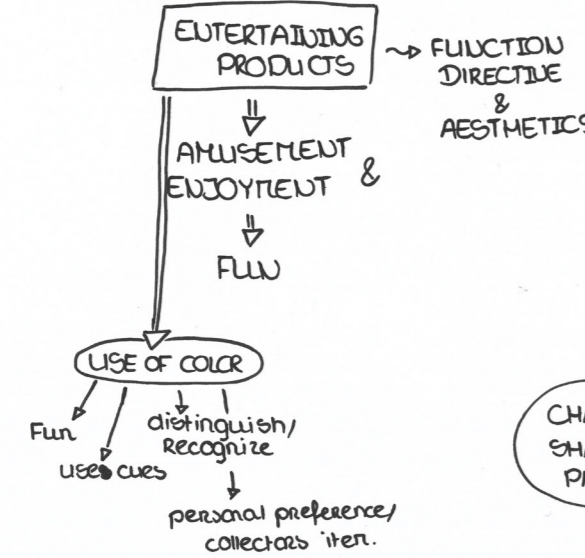 ENTERTAINING
PRODUCTS
FUNCTION
DIRECTIVE
&
AESTHETICS
AMUSEMENT
ENJOYMENT &
FUN
USE OF COLOR
Fun
uses cues
distinguish/
Recognize
personal preference/
collectors item.